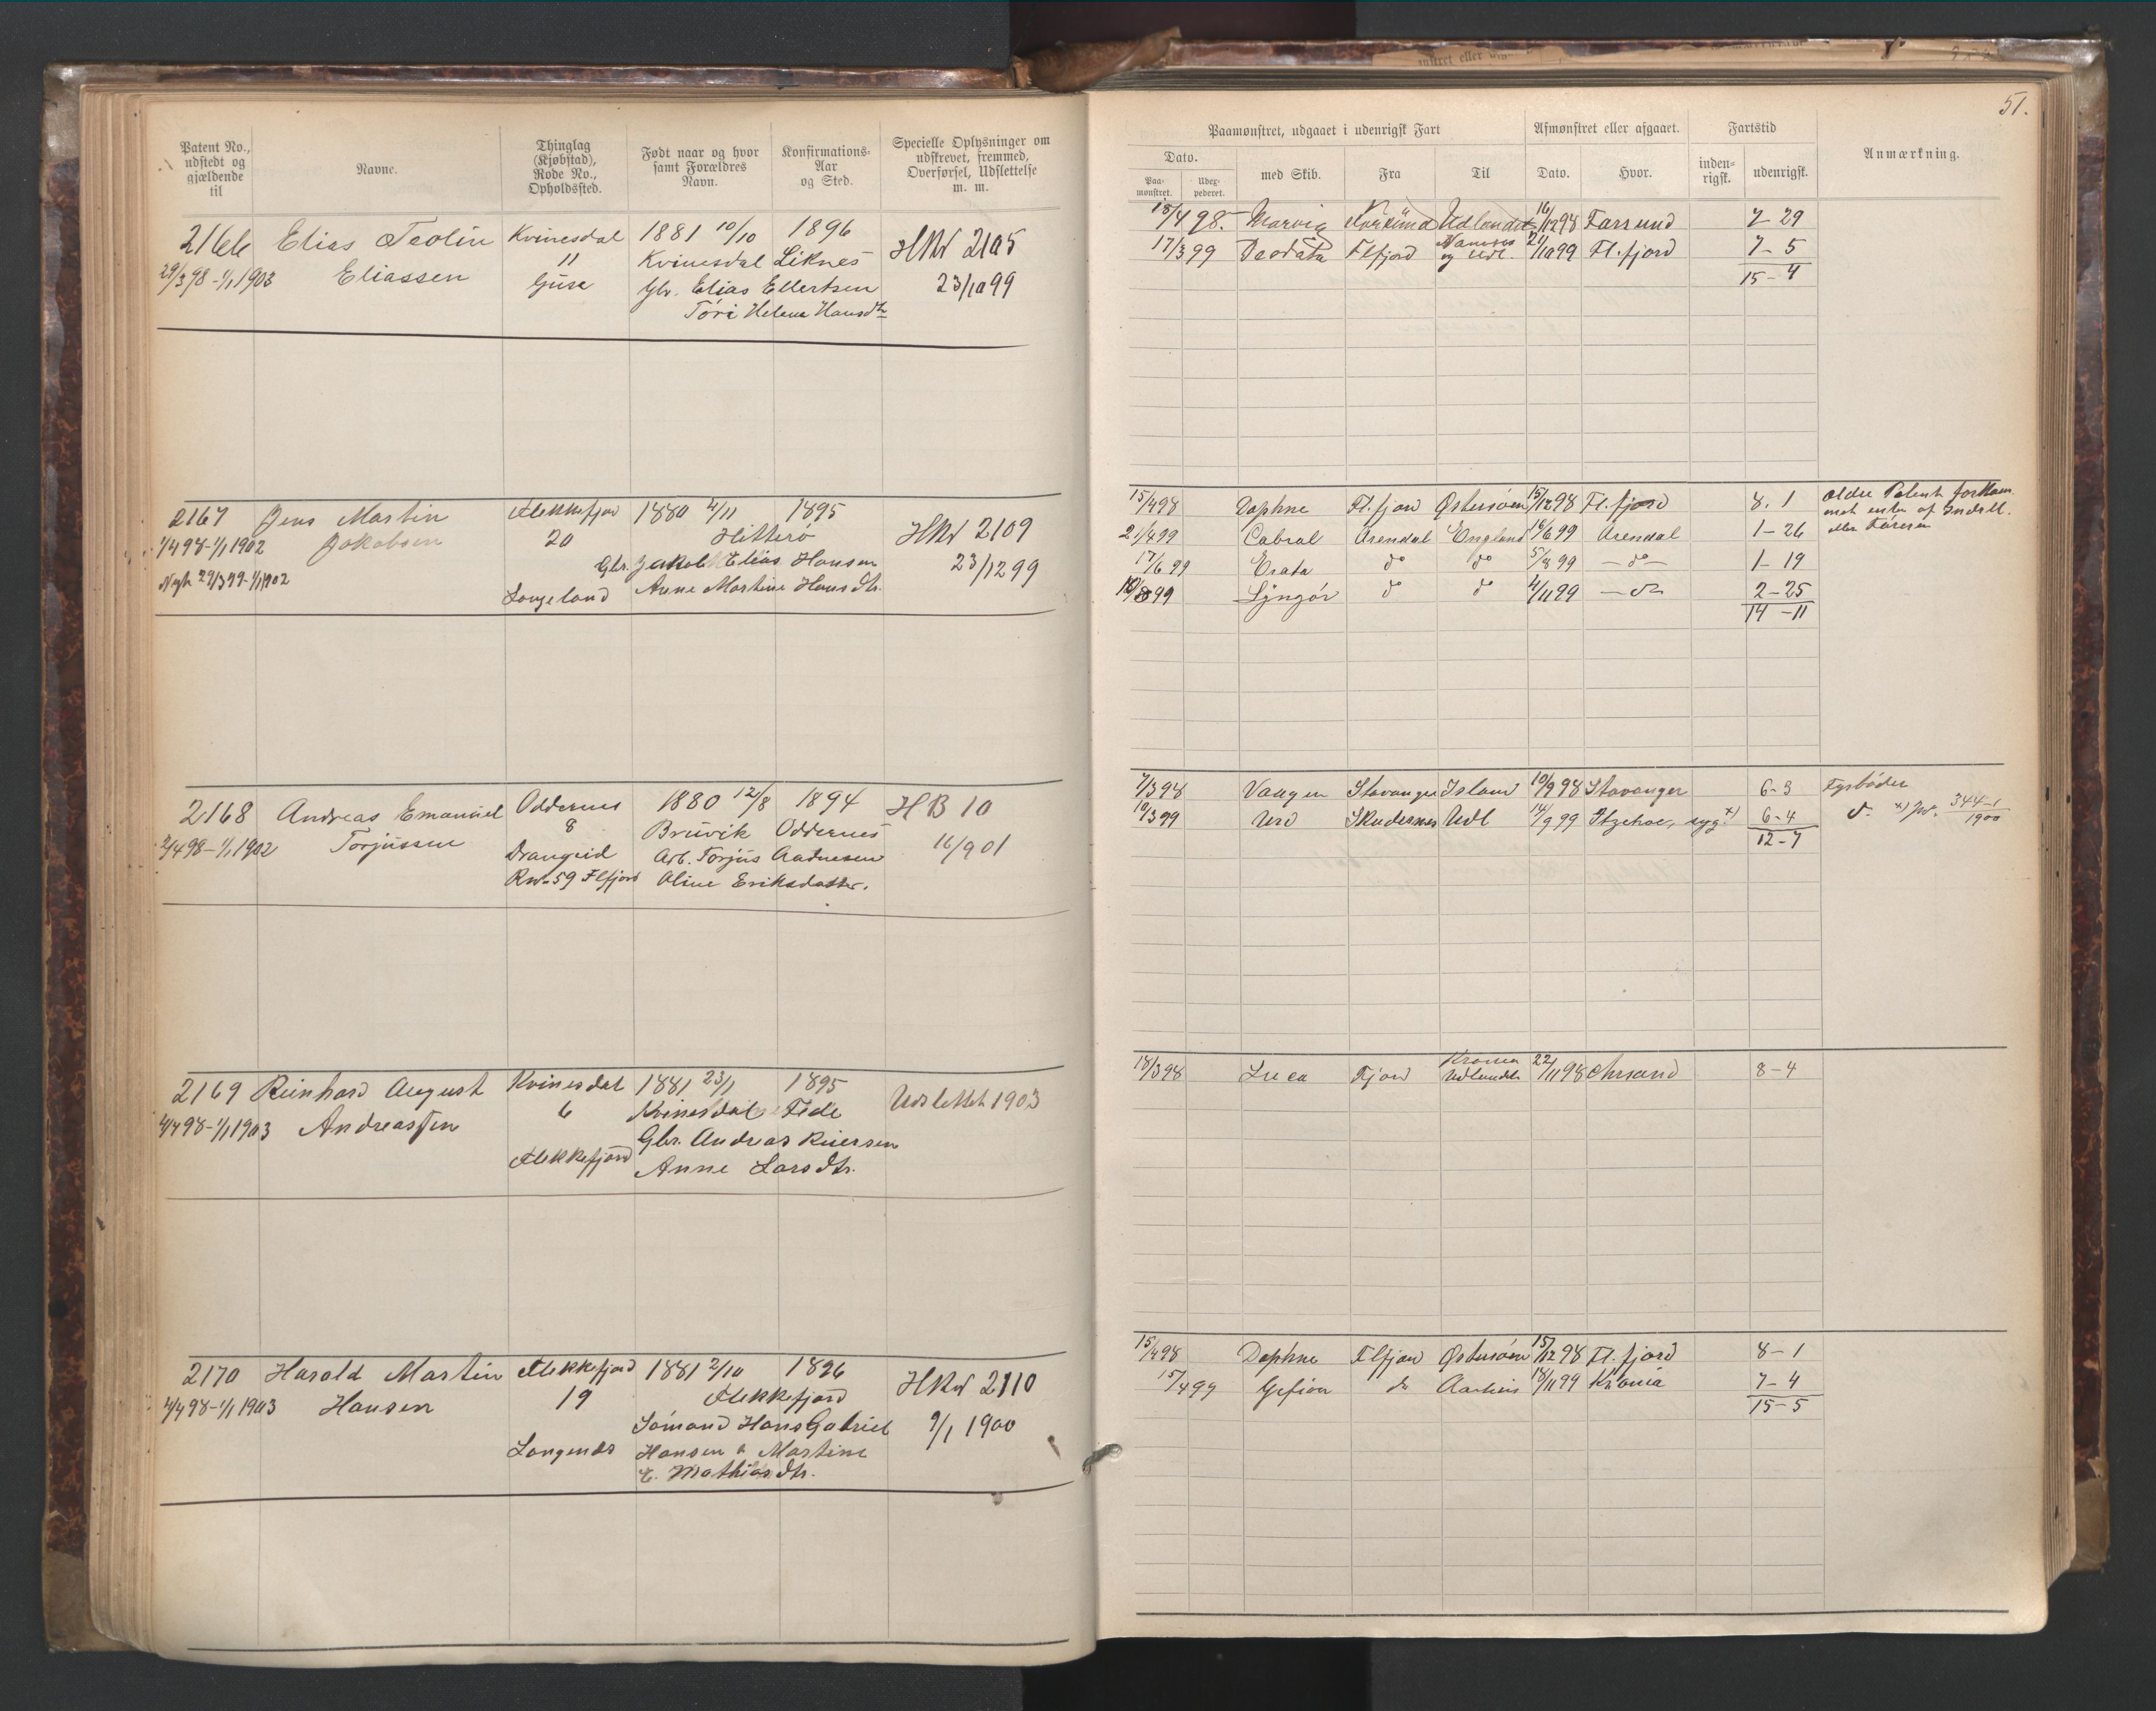 51.
Patent No., udstedt og gjældende til
Navne.
Thinglag (Kjøbstad), Rode No., Opholdssted.
Født naar og hvor samt Forældres Navn.
Konfirmations-Aar og Sted.
Specielle Oplysninger om udskrevet, fremmed, Overførsel, Udslettelse m. m.
Paamønstret, udgaaet i udenrigsk Fart
Afmønstret eller afgaaet.
Fartstid
Anmærkning.
Dato.
Paa-mønstret.
Udex-pederet.
med Skib.
Fra
Til
Dato.
Hvor.
inden-rigsk.
udenrigsk.
2166 Elias Teolin Kvinesdal 1881 10/10 1896 HKW 2105
29/3 98 - 1/1 1903 Eliassen 11 Kvinesdal Liknes
Gjuse Gbr. Elias Ellertsen 23/10 99
Tóri Helene Hansdtr
15/4 98. Narvig Udlandet 16/12 98 Farsund 7 - 29
17/3 99 Deodata Flfjord Namsos og Udl. 21/10 99 Fl.fjord 7 - 5
15 - 4
2167 Jens Martin Flekkefjord 1880 4/11 1895 HKW 2109
1/4 98 - 1/1 1902 Jakobsen 20 Hitterø
Nyt 29/3 99 - 1/1 1902 Gbr. Jakob Elias Hansen 23/12 99
Langeland Anne Martine Hansdtr.
15/4 98 Daphne Fl.fjord Østersøen 15/12 98 Fl.fjord 8. 1 Ældre Patent forkom
21/4 99 Cabral Arendal England 16/6 99 Arendal 1 - 26
17/6 99 Erata do do 5/8 99 - do - 1 - 19
10/8 99 Lyngór do do 4/11 99 - do 2 - 25
14 - 11
2168 Andreas Emanuel Oddernes 1880 12/8 1894 HB 10
2/4 98 - 1/1 1902 Torjüssen 8 Brüvik Oddernes
Drangeid Arb. Torjüs Aadnesen 16/9 01
Rno 59 Flfjord Aline Eriksdatter.
7/3 98 Vaagen Stavanger Island 10/9 98 Stavanger 6 - 3 Fyrbøder
10/3 99 Urd Skudesnes Udl 14/9 99 Itzehoe, syg x) 6 - 4 do x) Jrd. 344-1/1900
12 - 7
2169 Reinhard August Kvinesdal 1881 23/1 1895 Udslettet 1903
4/4 98 - 1/1 1903 Andreassen 6 Kvinesdal Fede
Gbr. Andreas Reiersen
Flekkefjord Anne Larsdtr.
18/3 98 Luca Fjord Krania Udlandet 22/11 98 Chrsand 8 - 4
2170 Harald Martin Flekkefjord 1881 2/10 1896 HKW 2110
4/4 98 - 1/1 1903 Hansen 19 Flekkefjord
Sómand Hans Gabriel 9/1 1900
Langenæs Hansen & Martine
E. Mathiasdtr.
15/4 98 Daphne Flfjord Østersóen 15/12 98 Fl.fjord 8 - 1
15/4 99 Gefion do Aarhus 18/11 99 Krania 7 - 4
15 - 5